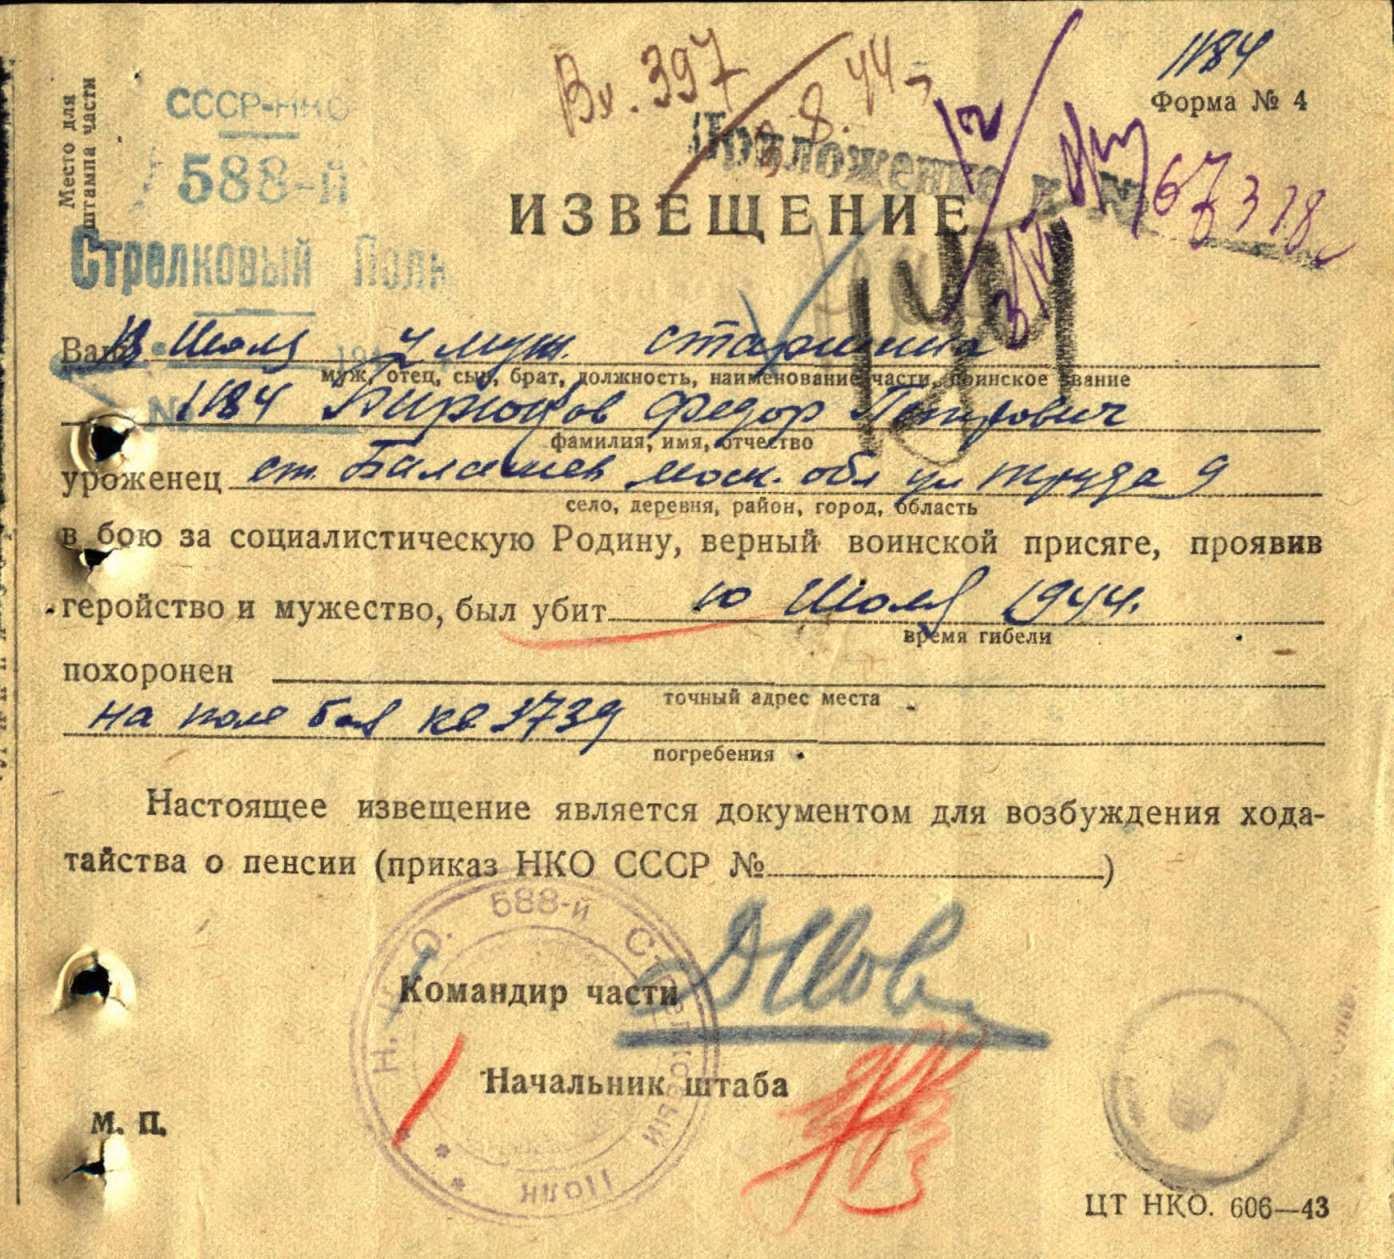 1184
Форма № 4
Вх. 397
8. 44
Место для
штампа части
СССР-НКО
588-й
Стрелковый Полк
Приложение к №
67318
ИЗВЕЩЕНИЕ
Ваш муж. старшина
муж, отец, сын, брат, должность, наименование части, воинское звание
18 Июля
№ 1184
Бирюков Федор Петрович
фамилия, имя, отчество
уроженец ст. Балашев моск. обл ул труда 9
село, деревня, район, город, область
в бою за социалистическую Родину, верный воинской присяге, проявив
геройство и мужество, был убит 10 Июля 1944.
время гибели
похоронен
точный адрес места
на поле боя кв 3739
погребения
Настоящее извещение является документом для возбуждения хода-
тайства о пенсии (приказ НКО СССР №)
Командир части
Начальник штаба
Н. К. О. 588-й Стрелковый Полк
М. П.
ЦТ НКО. 606—43